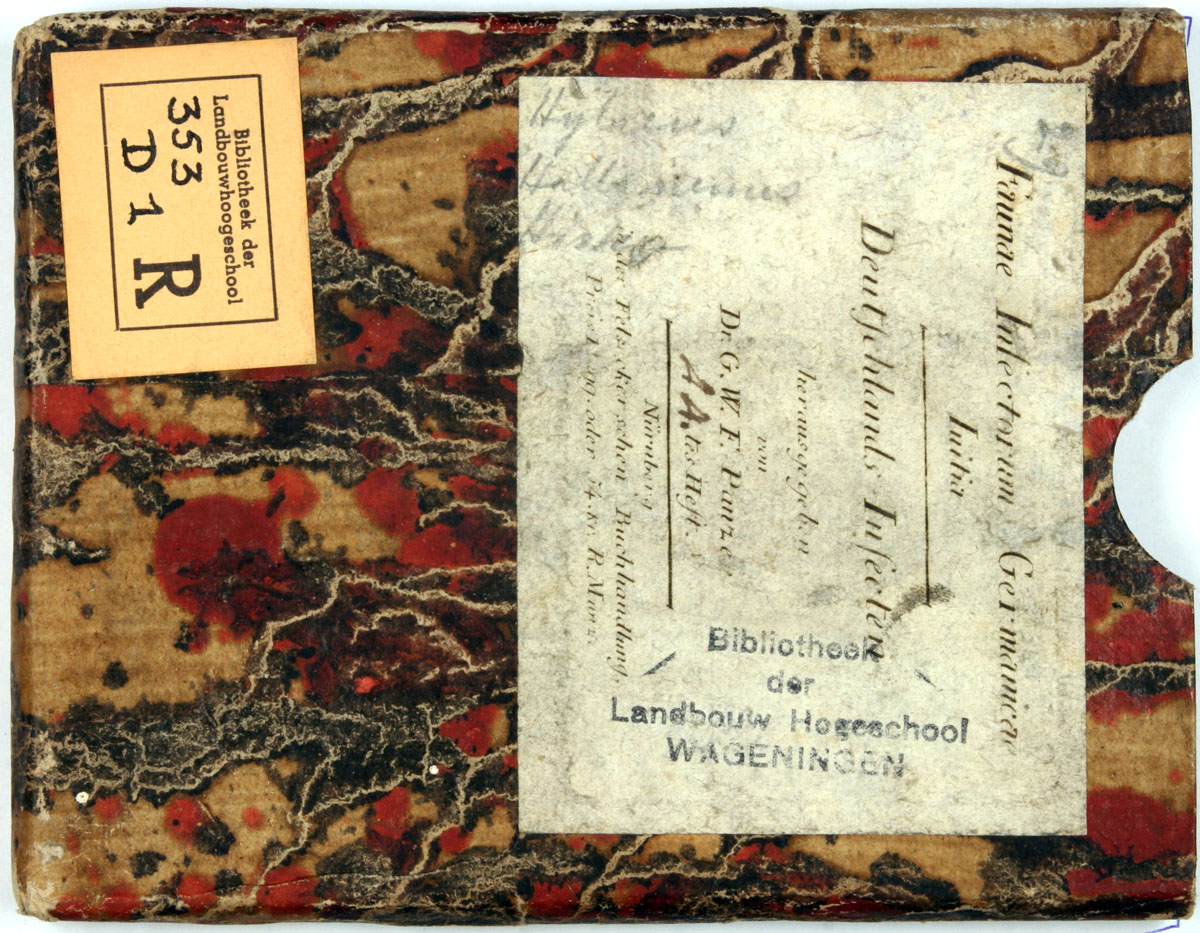 Bibliotheek der
Landbouwhoogeschool
353
D 1 R
Faunae Insectorum Germanicae
Initia
Deutſchlands Inſecten
herausgegeben
von
Dr. G. W. F. Panzer
tes Heft.
Nürnberg
in der Felseckerschen Buchhandlung.
Preis 12 gg. oder 54 kr. R. Münz.
Bibliotheek
der
Landbouw Hogeschool
WAGENINGEN